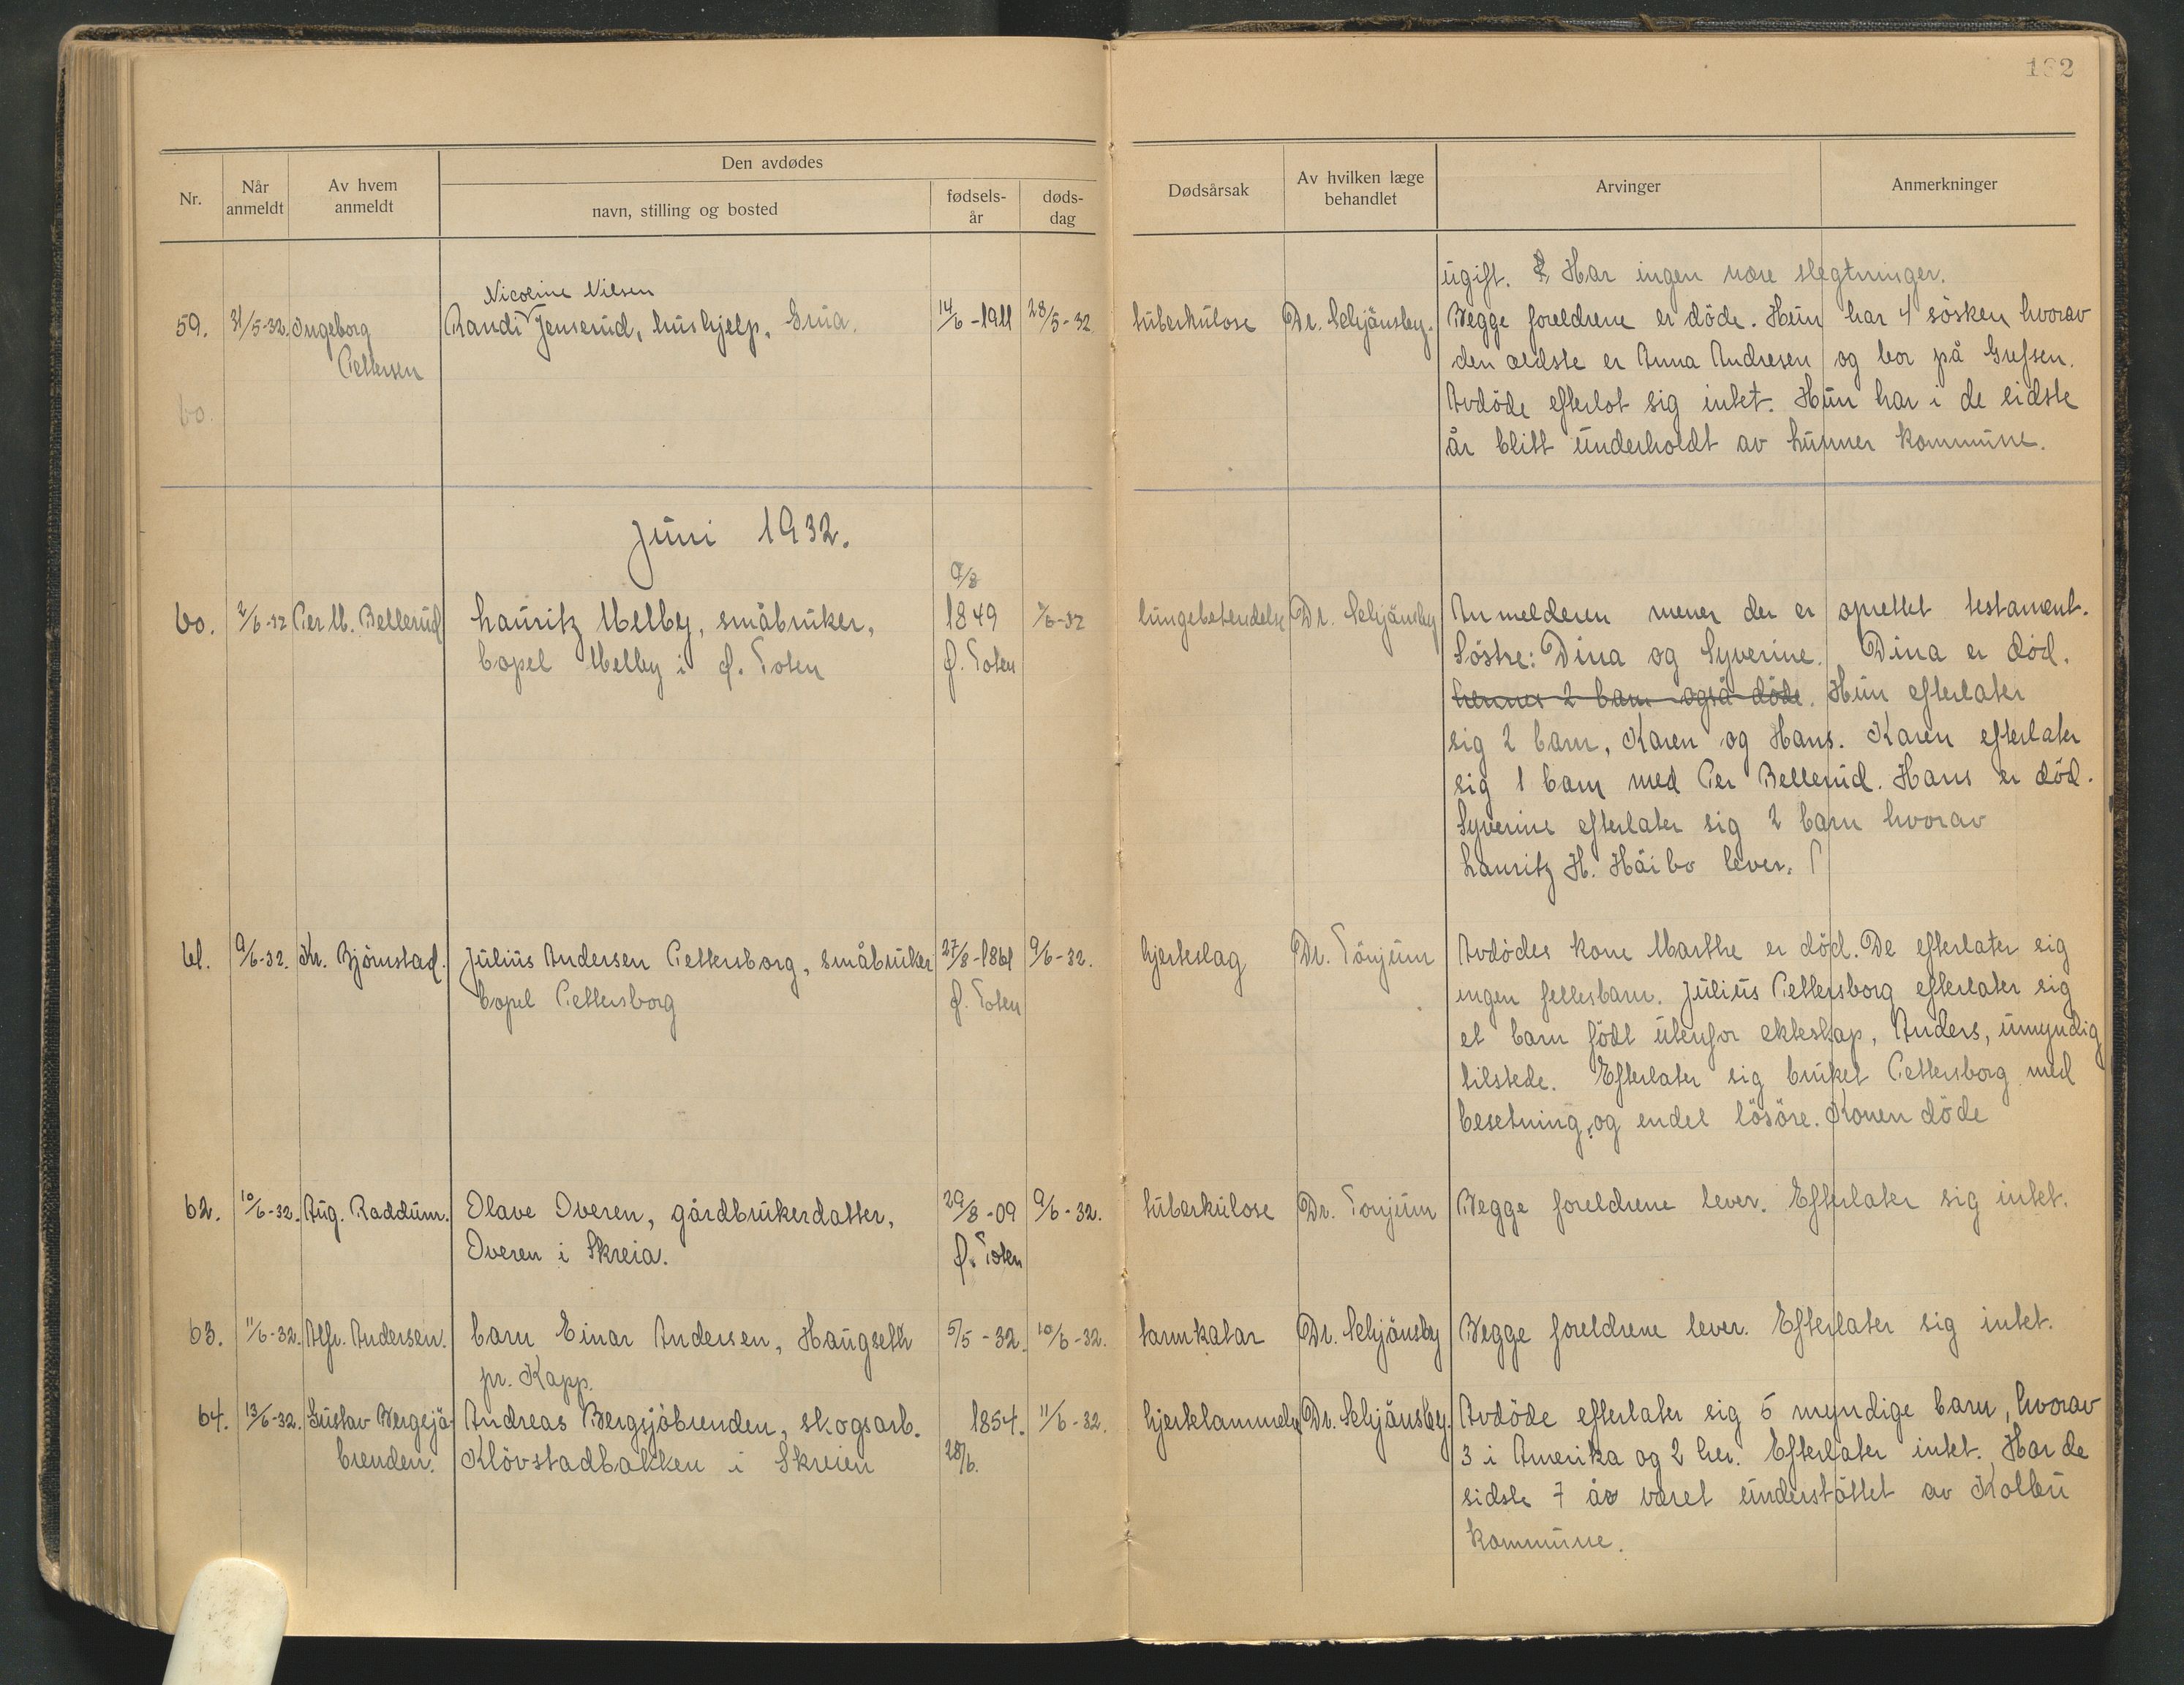 132
Nr.
Når anmeldt
Av hvem anmeldt
Den avdødes
navn, stilling og bosted
fødsels-år
døds-dag
Dødsårsak
Av hvilken læge behandlet
Arvinger
Anmerkninger
59. 31/5-32. Ingeborg Pettersen
Nicoline Nilsen
Randi Jenserud, hushjelp, Grua. 14/6-1911 28/5-32
tuberkulose Dr. Schjänsby.
ugift. Har ingen nære slegtninger.
Begge foreldrene er døde. Hun har 4 søsken hvorav
den ældste er Anna Andresen og bor på Grefsen.
Avdøde efterlot sig intet. Hun har i de sidste
år blitt underholdt av Lunner kommune.
60.
Juni 1932.
60. 2/6-32 Per M. Bellerud
Lauritz Melby, småbruker,
bopel Melby i Ø. Toten
9/8
1849
Ø. Toten
/6-32
lungebetendelse Dr. Schjänsby
Anmelderen mener der er oprettet testament.
Søstre: Dina og Syverine. Dina er død.
hennes 2 barn også døde. Hun efterlater
sig 2 barn, Karen og Hans. Karen efterlater
sig 1 barn med Per Bellerud. Hans er død.
Syverine efterlater sig 2 barn hvorav
Lauritz H. Håibo lever.
61. 9/6-32. Kr. Bjørnstad.
Julius Andersen Pettersborg, småbruker
bopel Pettersborg
27/8-1861
Ø. Toten
9/6-32.
hjerteslag Dr. Tönjum
Avdødes kone Marthe er død. De efterlater sig
ingen fellesbarn. Julius Pettersborg efterlater sig
et barn født utenfor ekteskap, Anders, umyndig
tilstede. Efterlater sig bruket Pettersborg med
besetning, og endel løsøre. Konen døde
62. 10/6-32. Aug. Raddum.
Olave Overen, gårdbrukerdatter,
Overen i Skreia.
29/8-09
Ø. Toten
9/6-32.
tuberkulose Dr. Tonjum
Begge foreldrene lever. Efterlater sig intet.
63. 11/6-32. Alfr. Andersen.
barn Einar Andersen, Haugseth
pr. Kapp.
5/5-32. 10/6-32.
tarmkatar Dr. Schjänsby
Begge foreldrene lever. Efterlater sig intet.
64. 13/6-32. Gustav Bergsjø-
brenden.
Andreas Bergsjøbrenden, skogsarb.
Kløvstadbakken i Skreien
1854.
28/6.
11/6-32.
hjertelammelse Dr. Schjänsby.
Avdøde efterlater sig 5 myndige barn, hvorav
3 i Amerika og 2 her. Efterlater intet. Har de
sidste 7 år været understøttet av Kolbu
kommune.